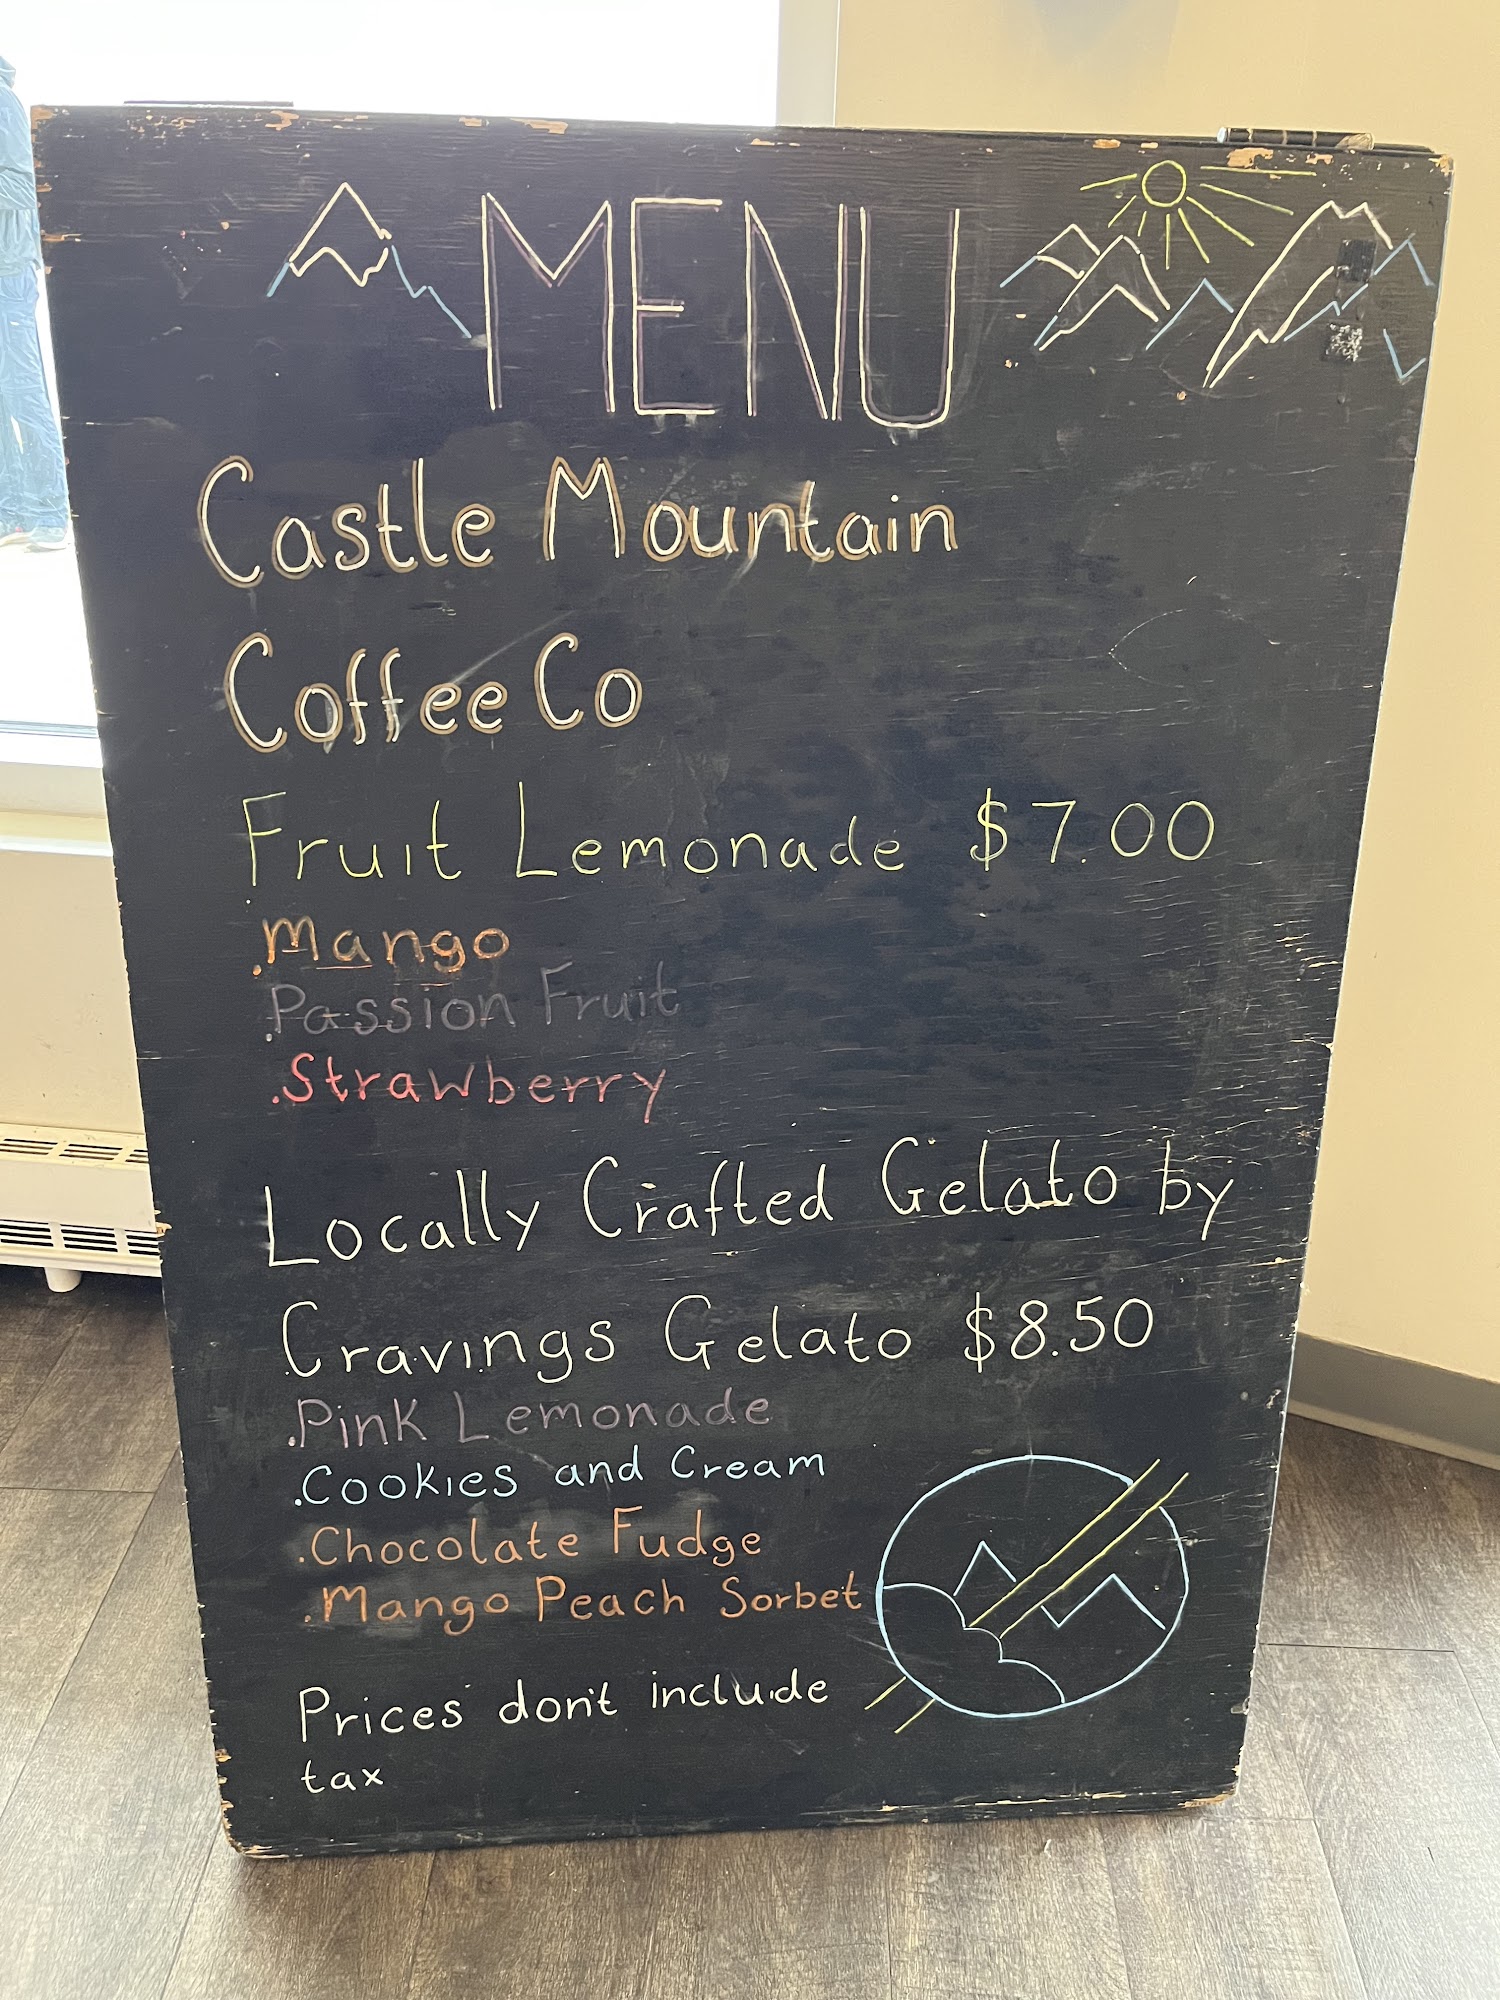 MENU
Castle Mountain
Coffee Co
Fruit Lemonade $7.00
.Mango
.Passion Fruit
.Strawberry
Locally Crafted Gelato by
Cravings Gelato $8.50
.Pink Lemonade
.Cookies and Cream
.Chocolate Fudge
.Mango Peach Sorbet
Prices don't include
tax